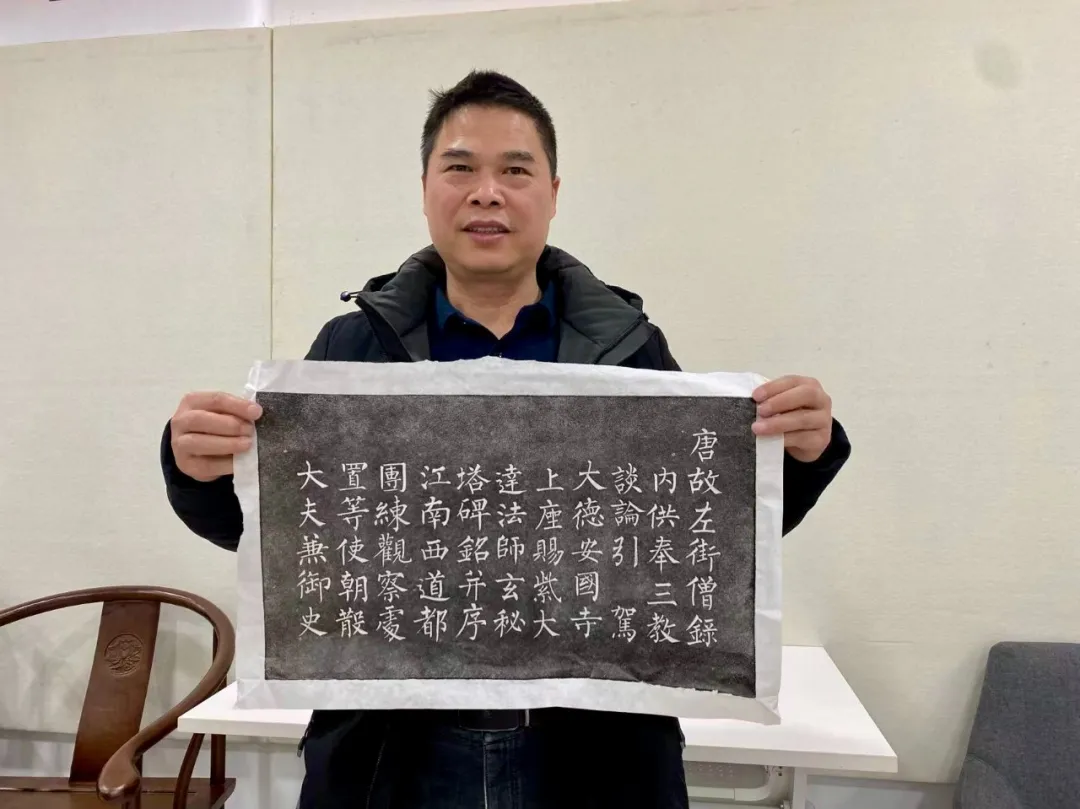 唐故左街僧錄
内供奉三教
談論引 駕
大德安國寺
上座賜紫大
達法師玄秘
塔碑銘并序
江南西道都
團練觀察處
置等使朝散
大夫兼御史